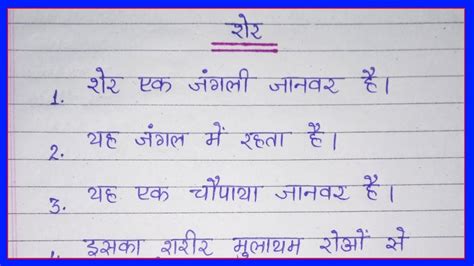 शेर
1. शेर एक जंगली जानवर है।
2. यह जंगल में रहता है।
3. यह एक चौपाया जानवर है।
इसका शरीर मुलायम रोओं से